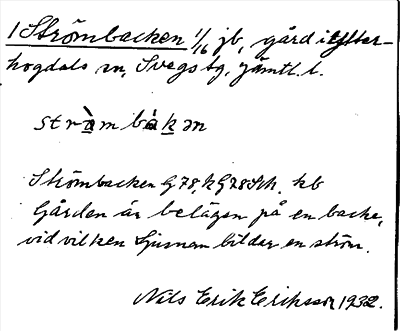 1 Strömbacken 1/16 jb, gård i Ytter-
hogdals sn, Svegs tg, Jämtl. l.
stràm bàkən
Strömbacken G 78, k G 78 Sch. kb
Gården är belägen på en backe,
vid vilken Ljusnan bildar en ström.
Nils Erik Eriksson 1932.